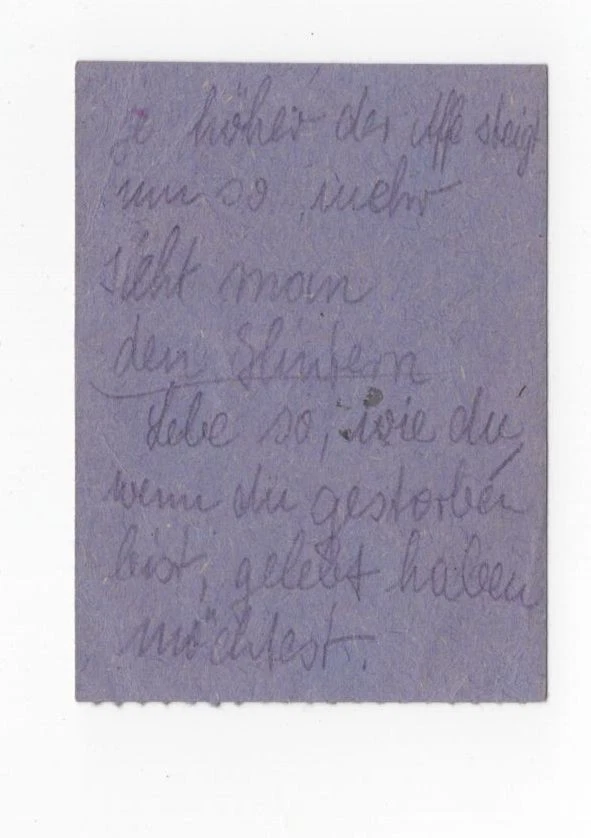 je höher der Affe steigt
um so mehr
sieht man
den Hintern
Lebe so, wie du,
wenn du gestorben
bist, gelebt haben
möchtest.